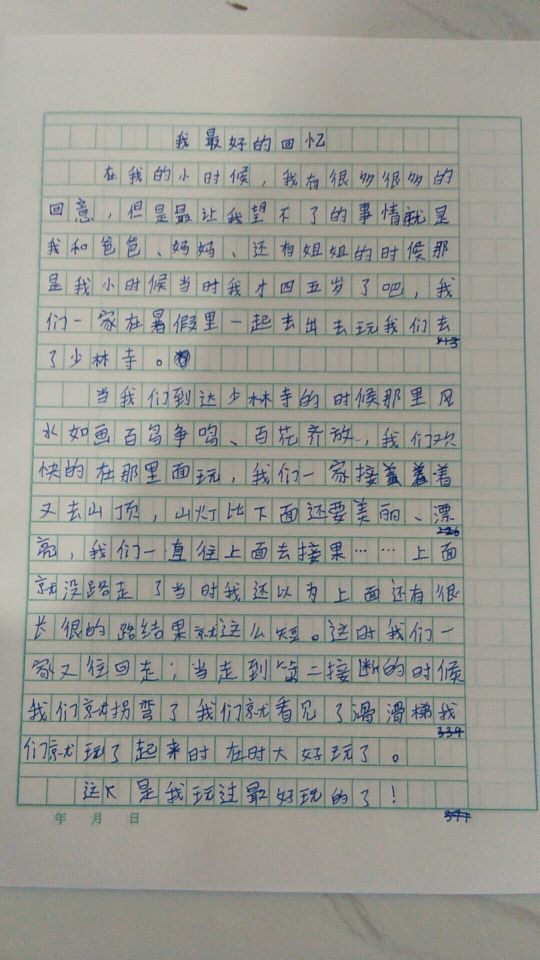 我最好的回忆
在我的小时候，我有很多很多的
回意，但是最让我望不了的事情就是
我和爸爸、妈妈、还有姐姐的时候那
是我小时候当时我才四五岁了吧，我
们一家在暑假里一起去出去玩我们去
了少林寺。
当我们到达少林寺的时候那里风
水如画百鸟争鸣、百花齐放，我们欢
快的在那里面玩，我们一家接着着着
又去山顶，山灯比下面还要美丽、漂
亮，我们一直往上面去接果……上面
就没路走了当时我还以为上面还有很
长很的路结果就这么短。这时我们一
家又往回走；当走到第二接断的时候
我们就拐弯了我们就看见了滑滑梯我
们就玩了起来时在时大好玩了。
这次是我玩过最好玩的了！
年 月 日